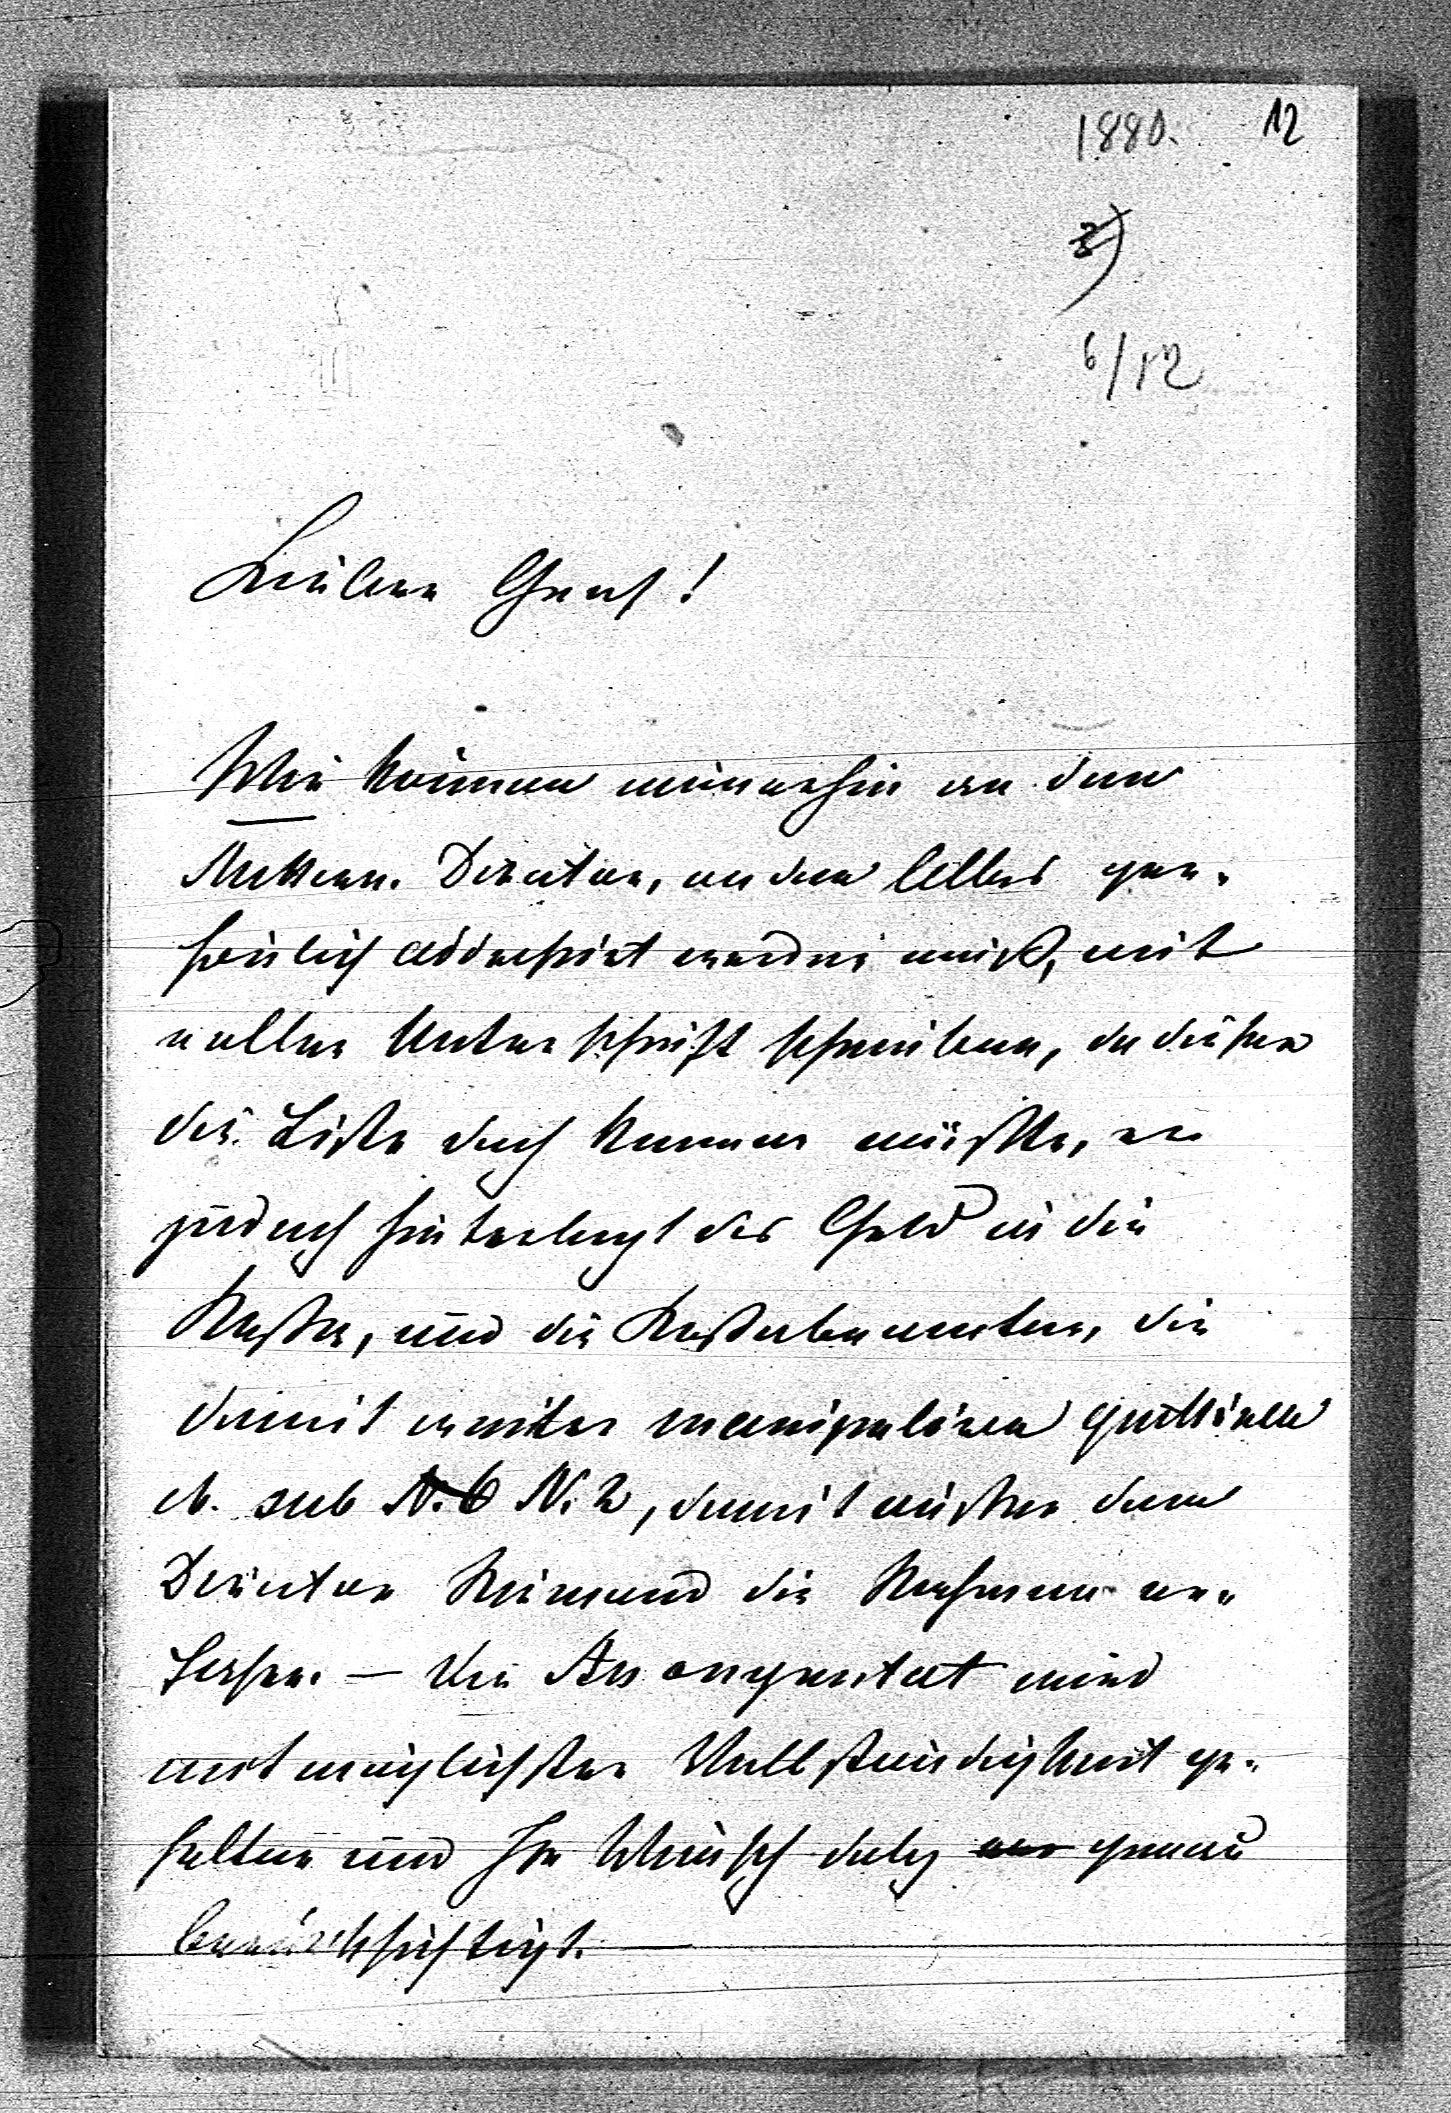 1880. 12
3)
6/12
Lieber Graf!
Wir können immerhin an den
Aukzion. Direktor, an den Alles per-
sönlich addressirt werden muß, mit
voller Unterschrift schreiben, da dieser
die Liste doch kennen müßte, er
jedoch hinterlegt das Geld in die
Kassa, und die Kassabeamten, die
damit weiter manipuliren quittiren
es sub N. 2, damit außer dem
Direktor Niemand die Nahmen er-
fahre. — Die Anonymitat wird
mit möglichster Vollständigkeit ge-
halten und Ihr Wunsch dabey genau
berücksichtigt. —